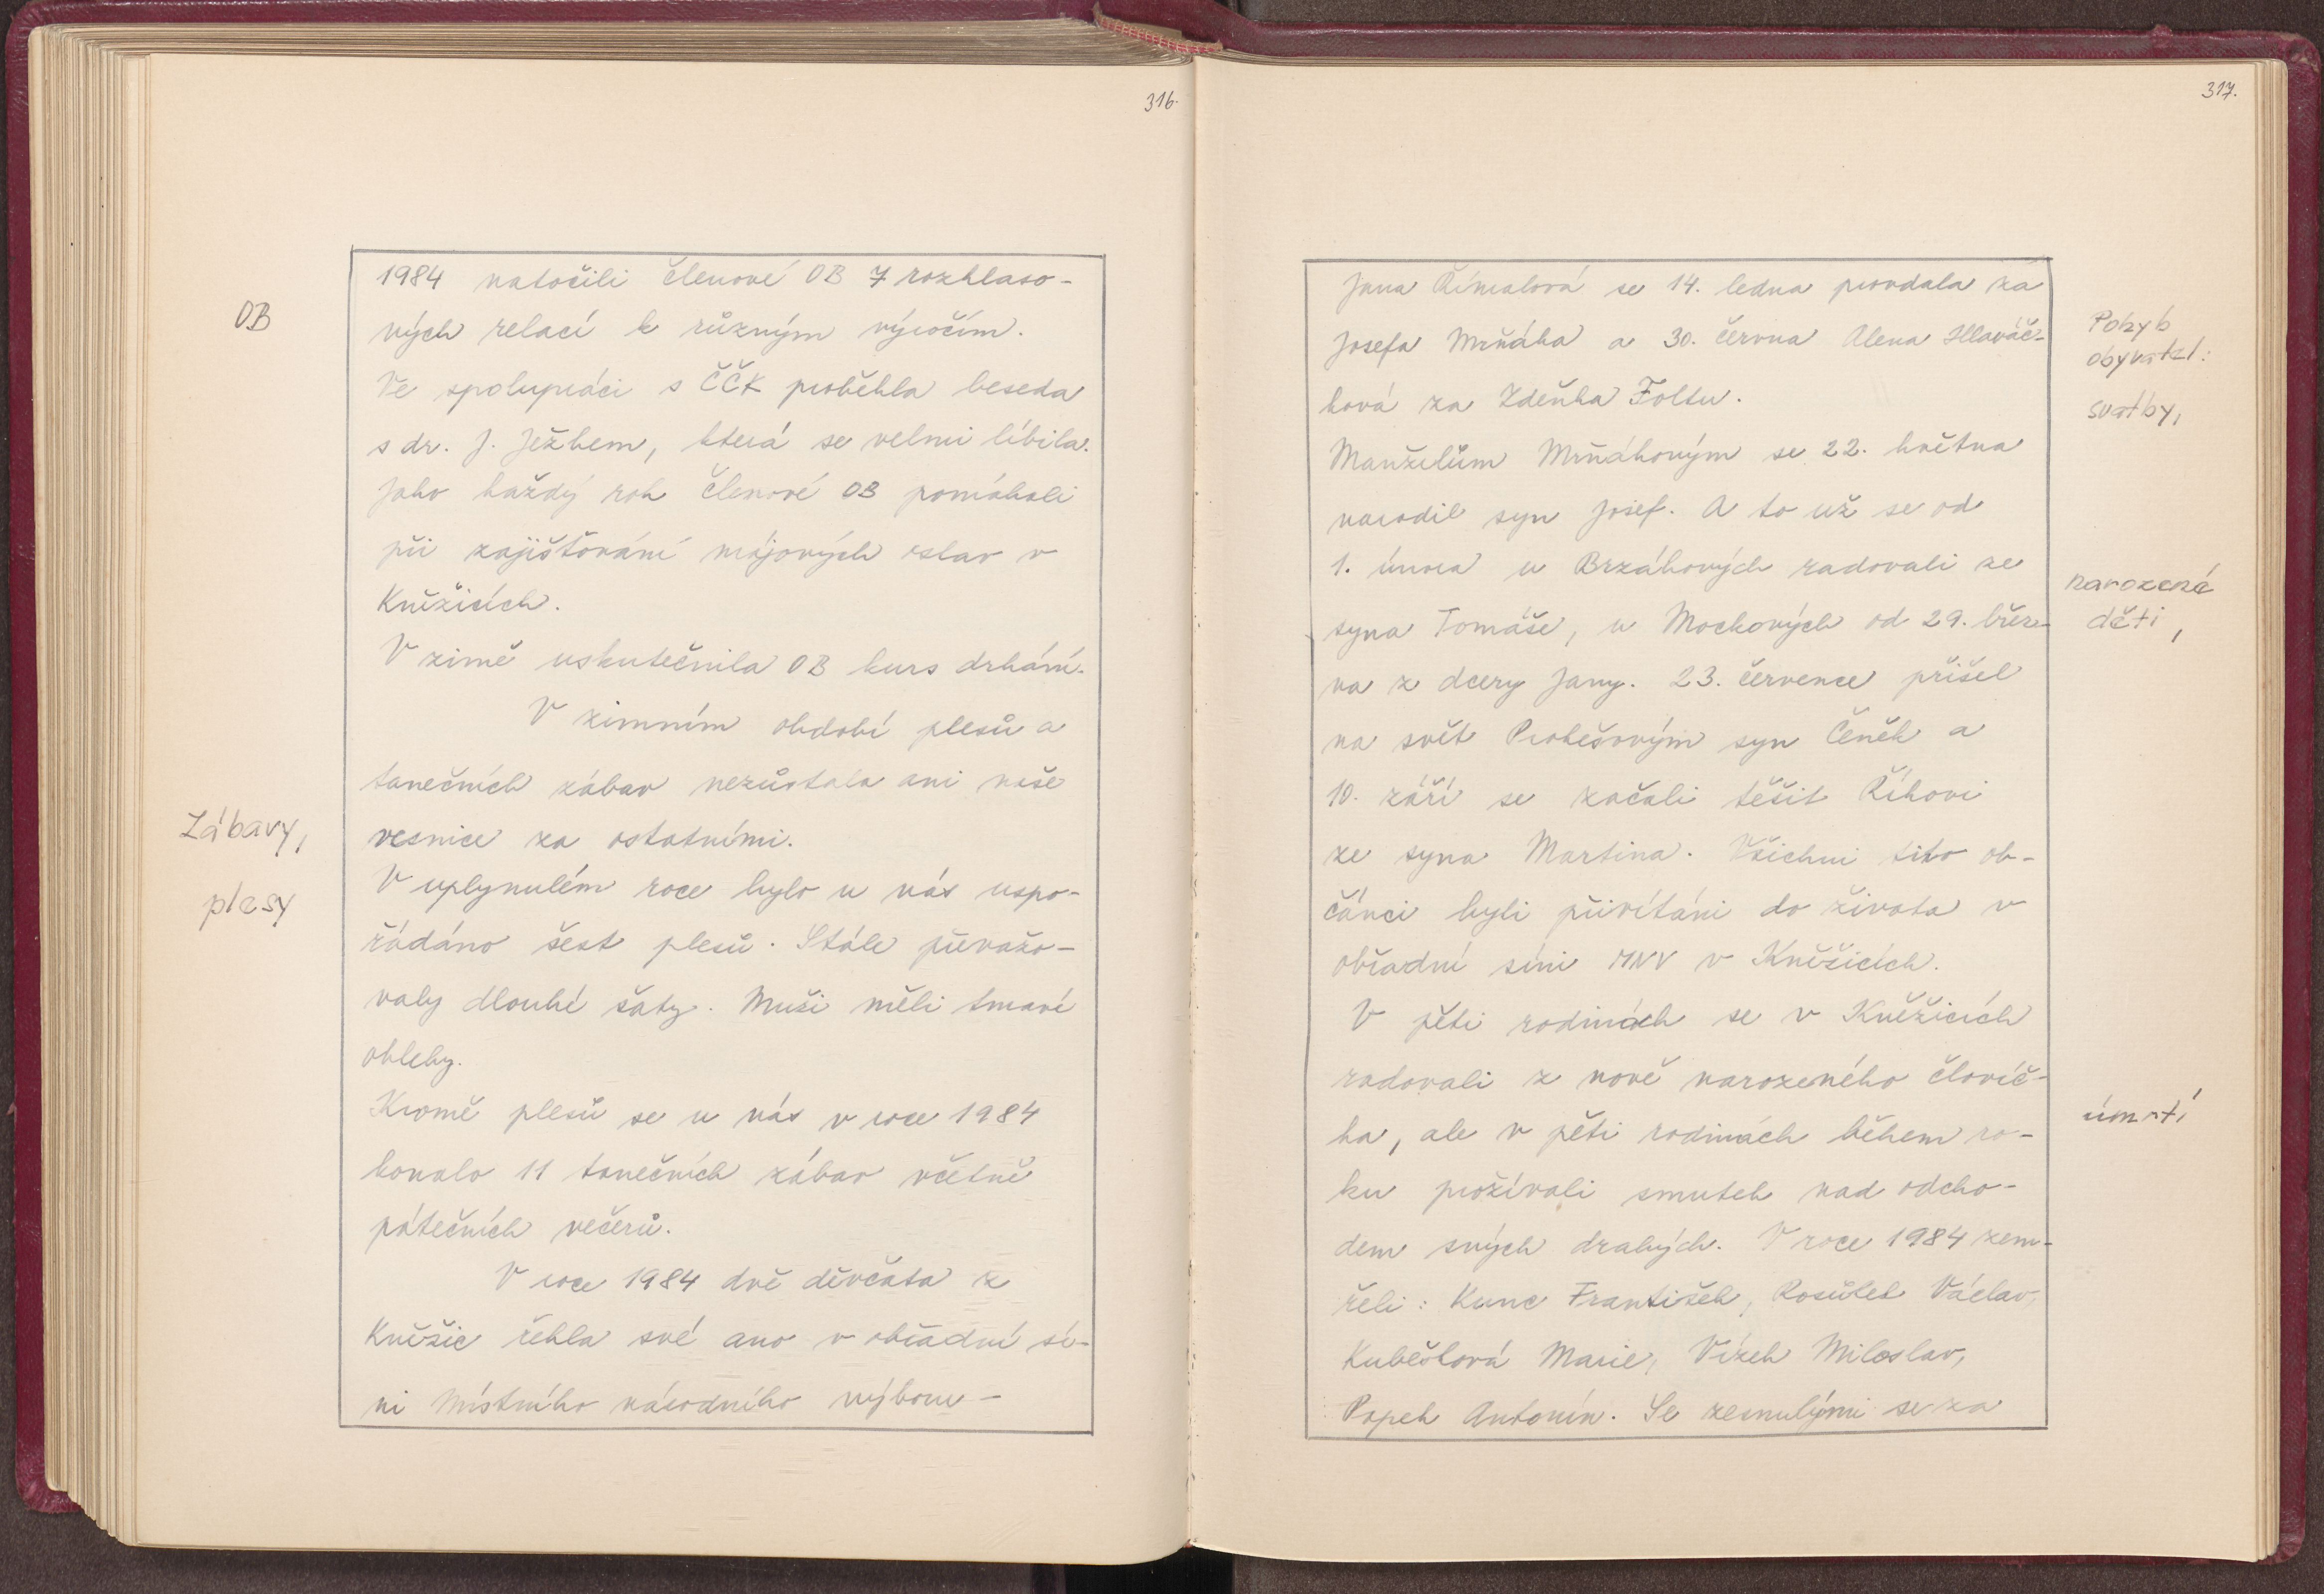 316.
OB
1984 natočili členové OB 7 rozhlaso-
vých relací k různým výročím.
Ve spolupráci s ČČK proběhla beseda
s dr. J. Ježkem, která se velmi líbila.
Jako každý rok členové OB pomáhali
při zajišťování májových oslav v
Kněžicích.
V zimě uskutečnila OB kurs drhání.
V zimním období plesů a
tanečních zábav nezůstala ani naše
vesnice za ostatními.
Zábavy,
plesy
V uplynulém roce bylo u nás uspo-
řádáno šest plesů. Stále převažo-
valy dlouhé šaty. Muži měli tmavé
obleky.
Kromě plesů se u nás v roce 1984
konalo 11 tanečních zábav včetně
pátečních večerů.
V roce 1984 dvě děvčata z
Kněžic řekla své ano v obřadní sí-
ni Místního národního výboru -
317.
Jana Římalová se 14. ledna provdala za
Josefa Mrňáka a 30. června Alena Hlaváč-
ková za Zdeňka Foltu.
Pohyb
obyvatel:
svatby,
Manželům Mrňákovým se 22. května
narodil syn Josef. A to už se od
1. února u Brzákových radovali ze
syna Tomáše, u Mockových od 29. břez-
na z dcery Jany. 23. července přišel
narozené
děti,
na svět Prokešovým syn Čeněk a
10. září se začali těšit Říhovi
ze syna Martina. Všichni tito ob-
čánci byli přivítáni do života v
obřadní síni MNV v Kněžicích.
V pěti rodinách se v Kněžicích
radovali z nově narozeného človíč-
ka, ale v pěti rodinách během ro-
úmrtí
ku prožívali smutek nad odcho-
dem svých drahých. V roce 1984 zem-
řeli: Kunc František, Rosůlek Václav,
Kubeštová Marie, Vízek Miloslav,
Popek Antonín. Se zesnulými se za